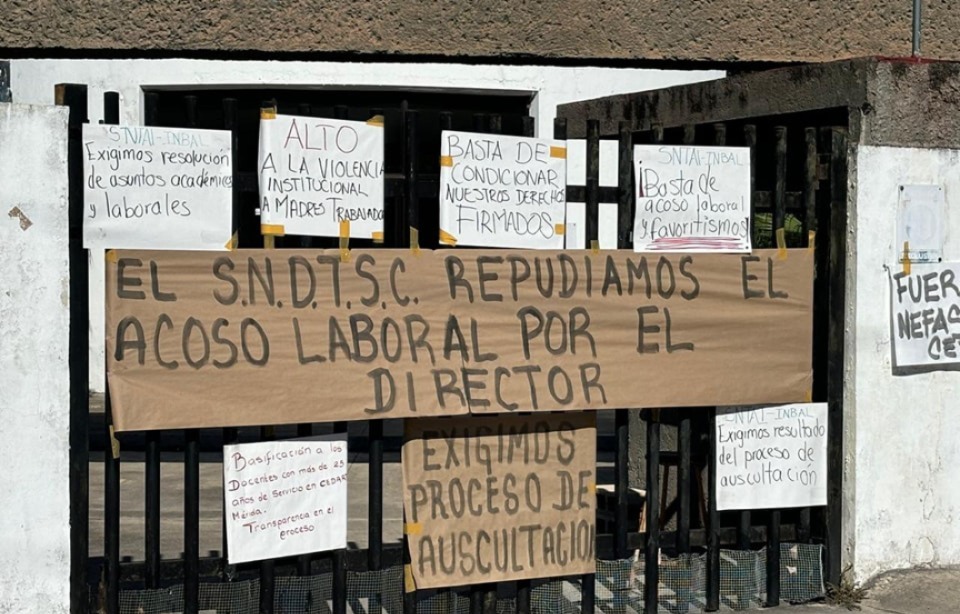 "STNIAI-INBAL
Exigimos resolución
de asuntos académicos
y laborales
ALTO
A LA VIOLENCIA
INSTITUCIONAL
A MADRES TRABAJADO
BASTA DE
CONDICIONAR
NUESTROS DERECHOS
FIRMADOS
SNTAI-INBAL
¡Basta de
acoso laboral
y favoritismos
EL S.N.D.T.S.C. REPUDIAMOS EL
ACOSO LABORAL POR EL
DIRECTOR
FUER
NEFAS
Basificación a los
Docentes con más de 25
años de Servicio en CEDART
Mérida.
Transparencia en el
proceso
EXIGIMOS
PROCESO DE
AUSCULTACION
SNTAI-INBAL
Exigimos resultado
del proceso de
auscultación